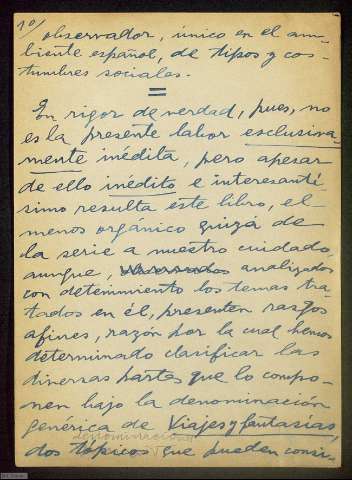 10/
observador, único en el am-
biente español, de tipos y cos-
tumbres sociales.
En rigor de verdad, pues, no
es la presente labor exclusiva-
mente inédita, pero apesar
de ello inédito e interesantí-
simo resulta este libro, el
menos orgánico quizá de
la serie a nuestro cuidado,
aunque, analizados
con detenimiento los temas tra-
tados en él, presenten rasgos
afines, razón por la cual hemos
determinado clasificar las
diversas partes que lo compo-
nen bajo la denominación
genérica de Viajes y fantasías,
denominaciones
dos tópicos que pueden consi-